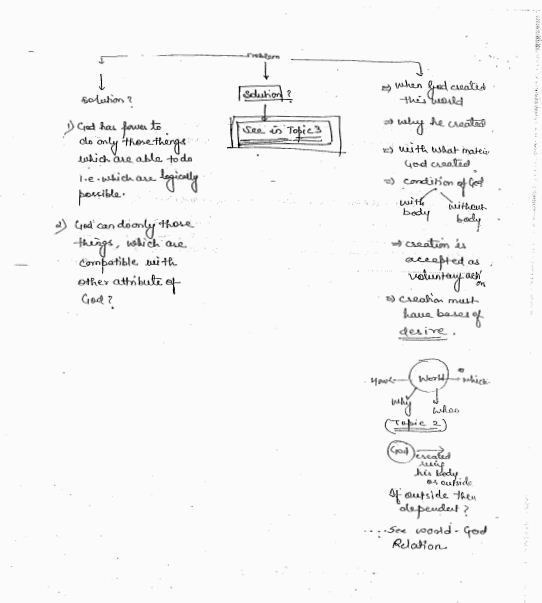 Problem
Solution?
1) God has power to
do only those things
which are able to do
i.e. which are logically
possible.
2) God can do only those
things, which are
compatible with
other attribute of
God?
Solution?
See in Topic 3
⇒ when God created
this world
⇒ why he created
⇒ with what
God created
⇒ condition of God
with
body
without
body
⇒ creation is
accepted as
voluntary action
⇒ creation must
have bases of
desire.
World
which
why
(Topic 2)
God
created
using
his body
or outside
If outside then
dependent?
....See world-God
Relation